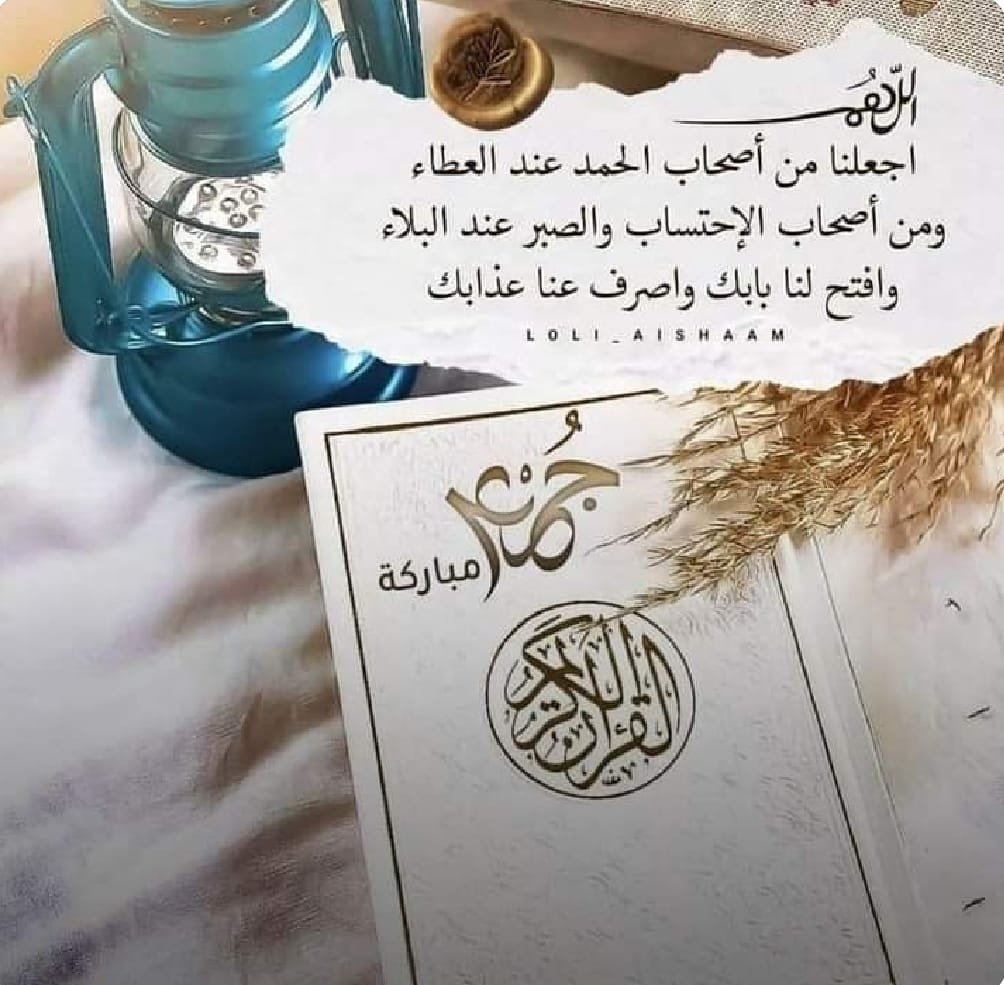 اللهم
اجعلنا من أصحاب الحمد عند العطاء
ومن أصحاب الإحتساب والصبر عند البلاء
وافتح لنا بابك واصرف عنا عذابك
LOLI_AISHAAM
جمعة
مباركة
القرآن الكريم